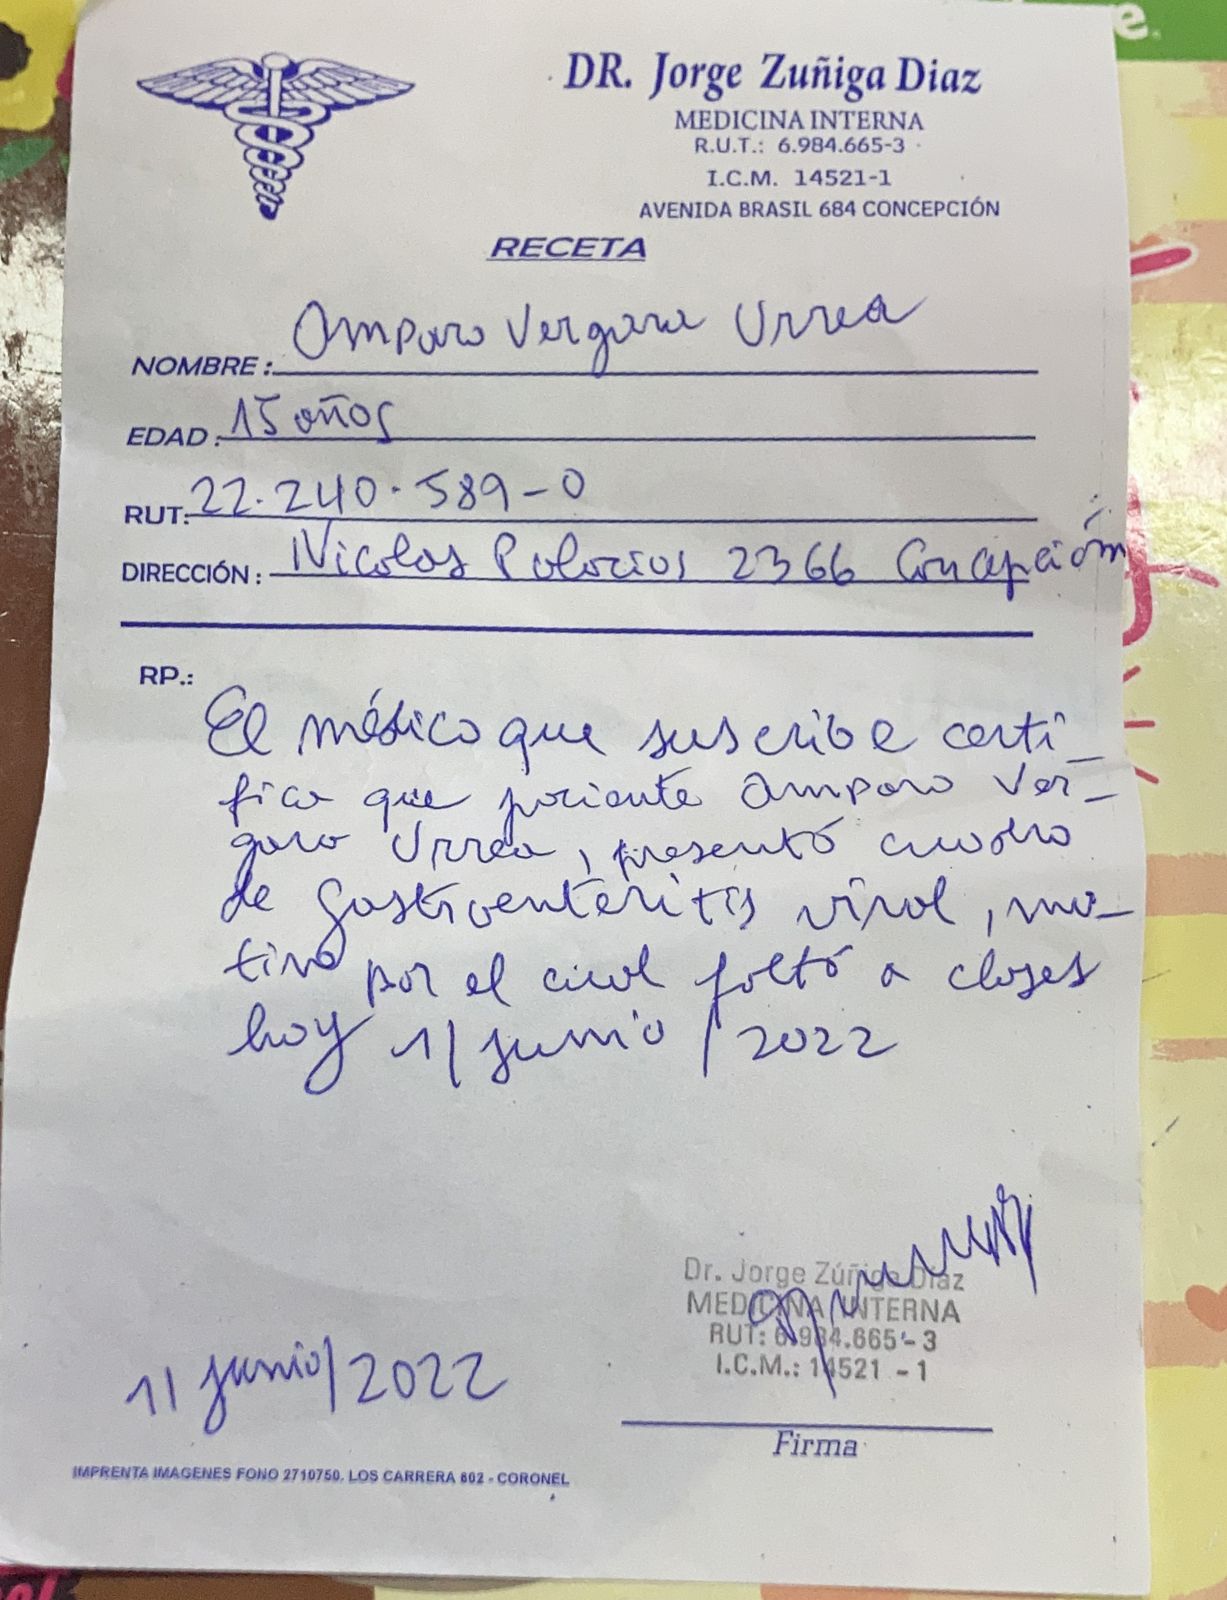 e
DR. Jorge Zuñiga Diaz
MEDICINA INTERNA
R.U.T.: 6.984.665-3
I.C.M. 14521-1
AVENIDA BRASIL 684 CONCEPCIÓN
RECETA
NOMBRE: Amparo Vergara Urrea
EDAD: 15 años
RUT: 22.240.589-0
DIRECCIÓN: Nicolas 2366 Concepción
RP.:
El médico que suscribe certi-
fica que paciente Amparo Ver-
gara Urrea, presentó cuadro
de Gastroenteritis viral, mo-
tivo por el cual faltó a clases
hoy 1/junio/2022
Dr. Jorge Zúñiga Diaz
MEDICINA INTERNA
RUT: 6.984.665-3
I.C.M.: 14521 -1
1/junio/2022
Firma
IMPRENTA IMAGENES FONO 2710750. LOS CARRERA 802 - CORONEL